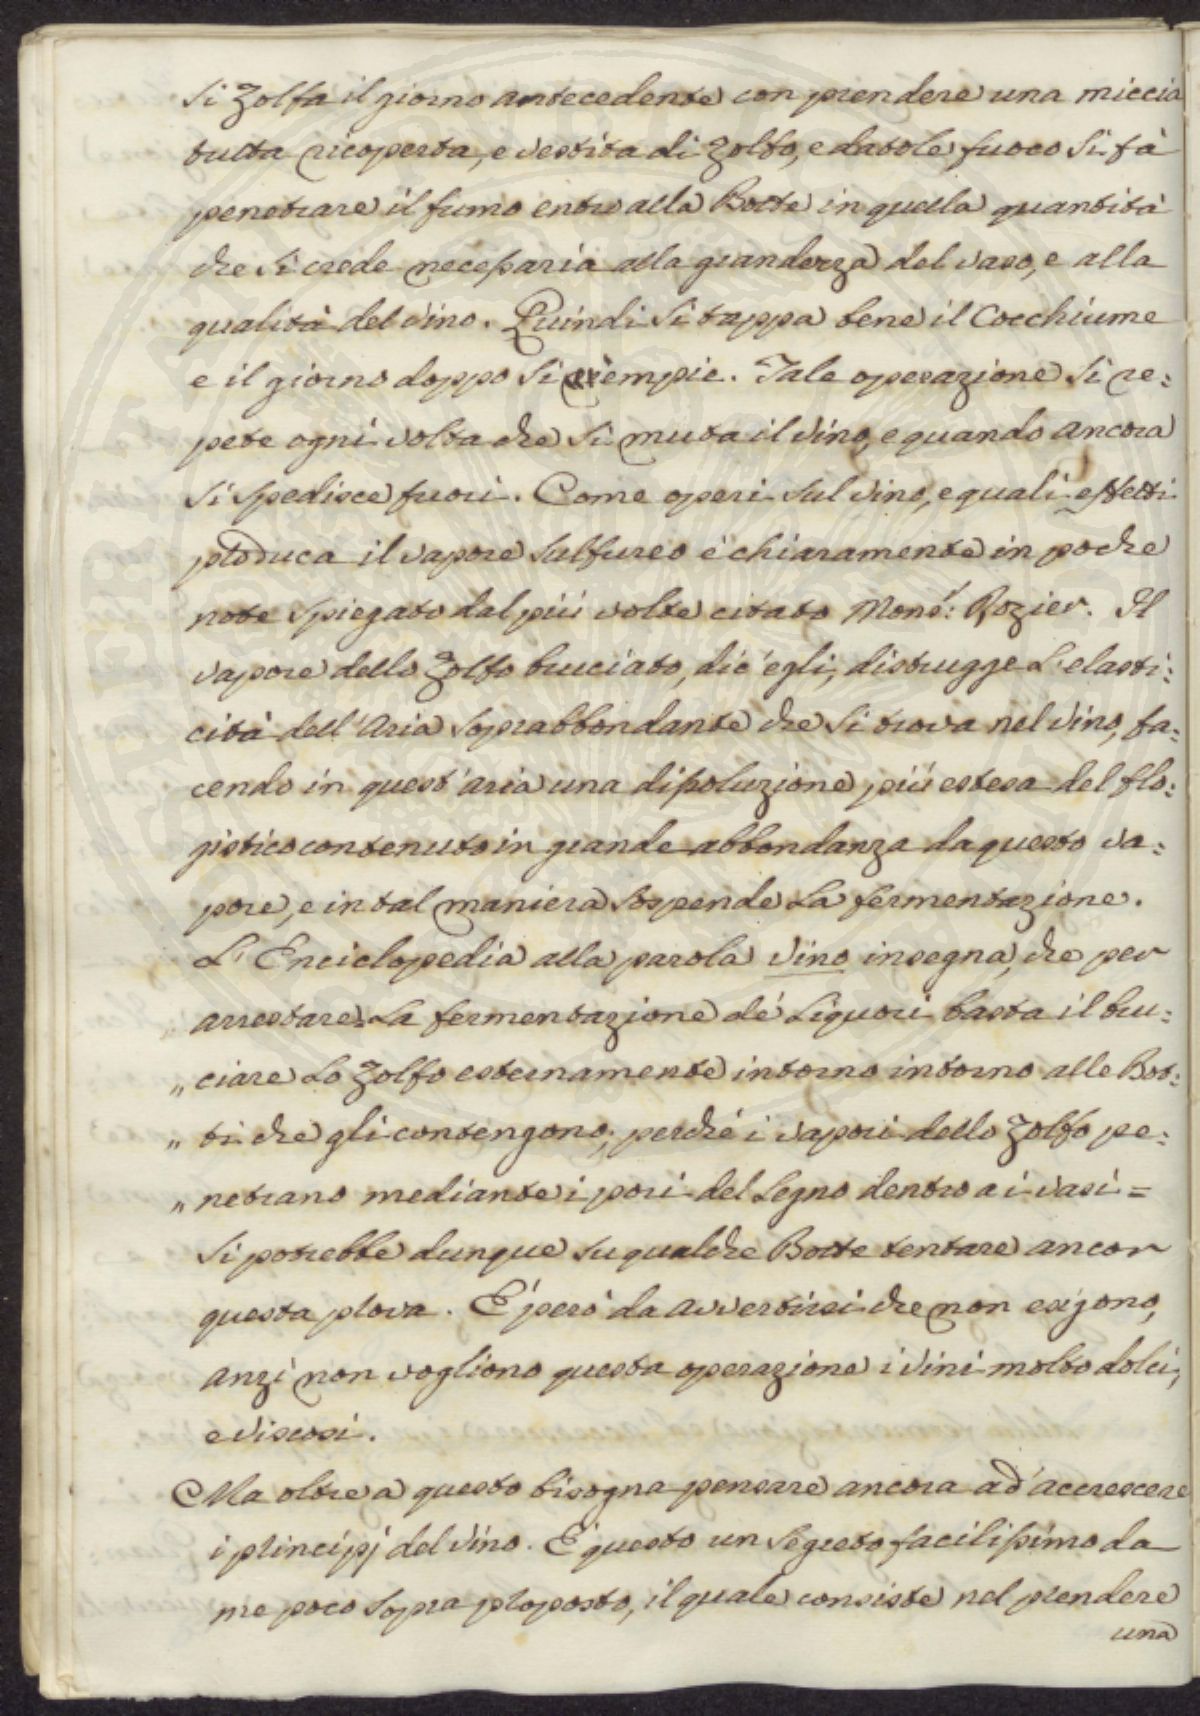 Si Zolfa il giorno antecedente con prendere una miccia
tutta ricoperta, e vestita di Zolfo, e datole fuoco si fà
penetrare il fumo entro alla Botte in quella quantità
che si crede necessaria alla grandezza del vaso, e alla
qualità del vino. Quindi si tappa bene il Cocchiume
e il giorno doppo si riempie. Tale operazione si re:
pete ogni volta che si muta il vino, e quando ancora
si spedisce fuori. Come operi sul vino, e quali effetti
produca il vapore sulfureo è chiaramente in poche
note spiegato dal più volte citato Mons: Rozier. Il
vapore dello Zolfo bruciato, dic'egli, distrugge l'elasti:
cità dell'Aria soprabbondante che si trova nel vino, fa:
cendo in quest'aria una dissoluzione più estesa del flo:
gistico contenuto in grande abbondanza da questo va:
pore, e in tal maniera sospende la fermentazione.
L'Enciclopedia alla parola vino insegna, che per
„ arrestare la fermentazione de' Liquori basta il bru:
„ ciare lo Zolfo esternamente intorno intorno alle Bot:
„ ti che gli contengono; perché i vapori dello Zolfo pe:
„ netrano mediante i pori del Legno dentro a i vasi =
Si potrebbe dunque su qualche Botte tentare ancor
questa prova. È però da avvertirsi che non esigono,
anzi non vogliono questa operazione i vini molto dolci,
e viscosi.
Ma oltre a questo bisogna pensare ancora ad'accrescere
i principj del vino. È questo un segreto facilissimo da
me poco sopra proposto, il quale consiste nel prendere
una